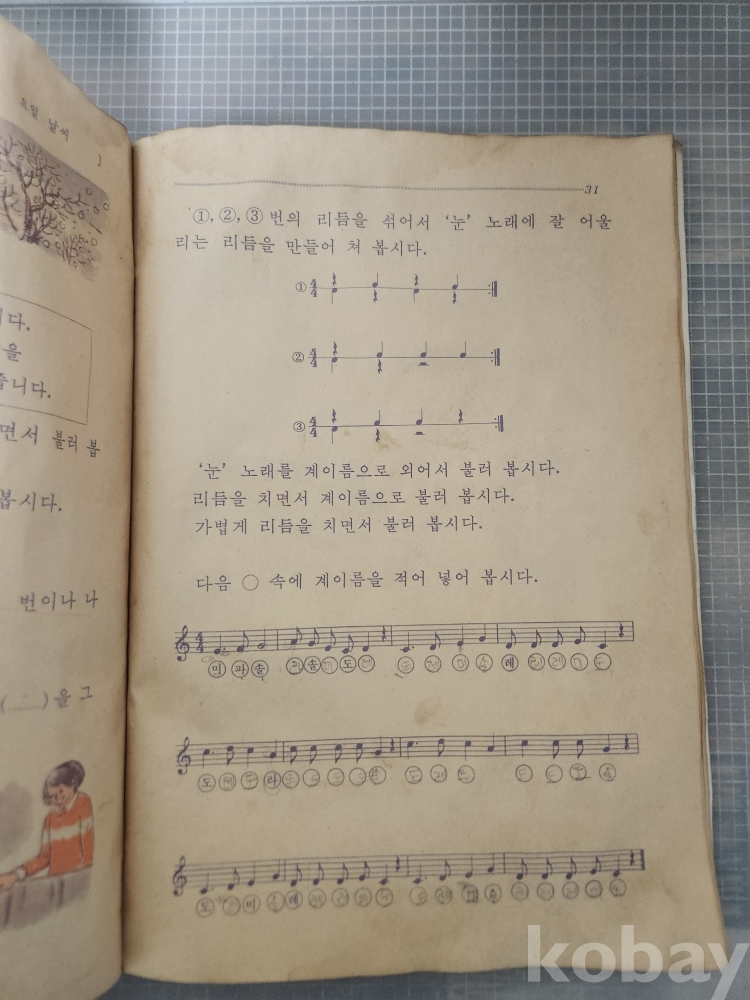 요일 날씨
니다.
을
줍니다.
면서 불러 봅
봅시다.
번이나 나
( )을 그
31
①, ②, ③ 번의 리듬을 섞어서 ‘눈’ 노래에 잘 어울
리는 리듬을 만들어 쳐 봅시다.
① 4/4
② 4/4
③ 4/4
‘눈’ 노래를 계이름으로 외어서 불러 봅시다.
리듬을 치면서 계이름으로 불러 봅시다.
가볍게 리듬을 치면서 불러 봅시다.
다음 ○ 속에 계이름을 적어 넣어 봅시다.
4/4
미 파 솔 솔 도 레
도 라
도 미 레
kobay